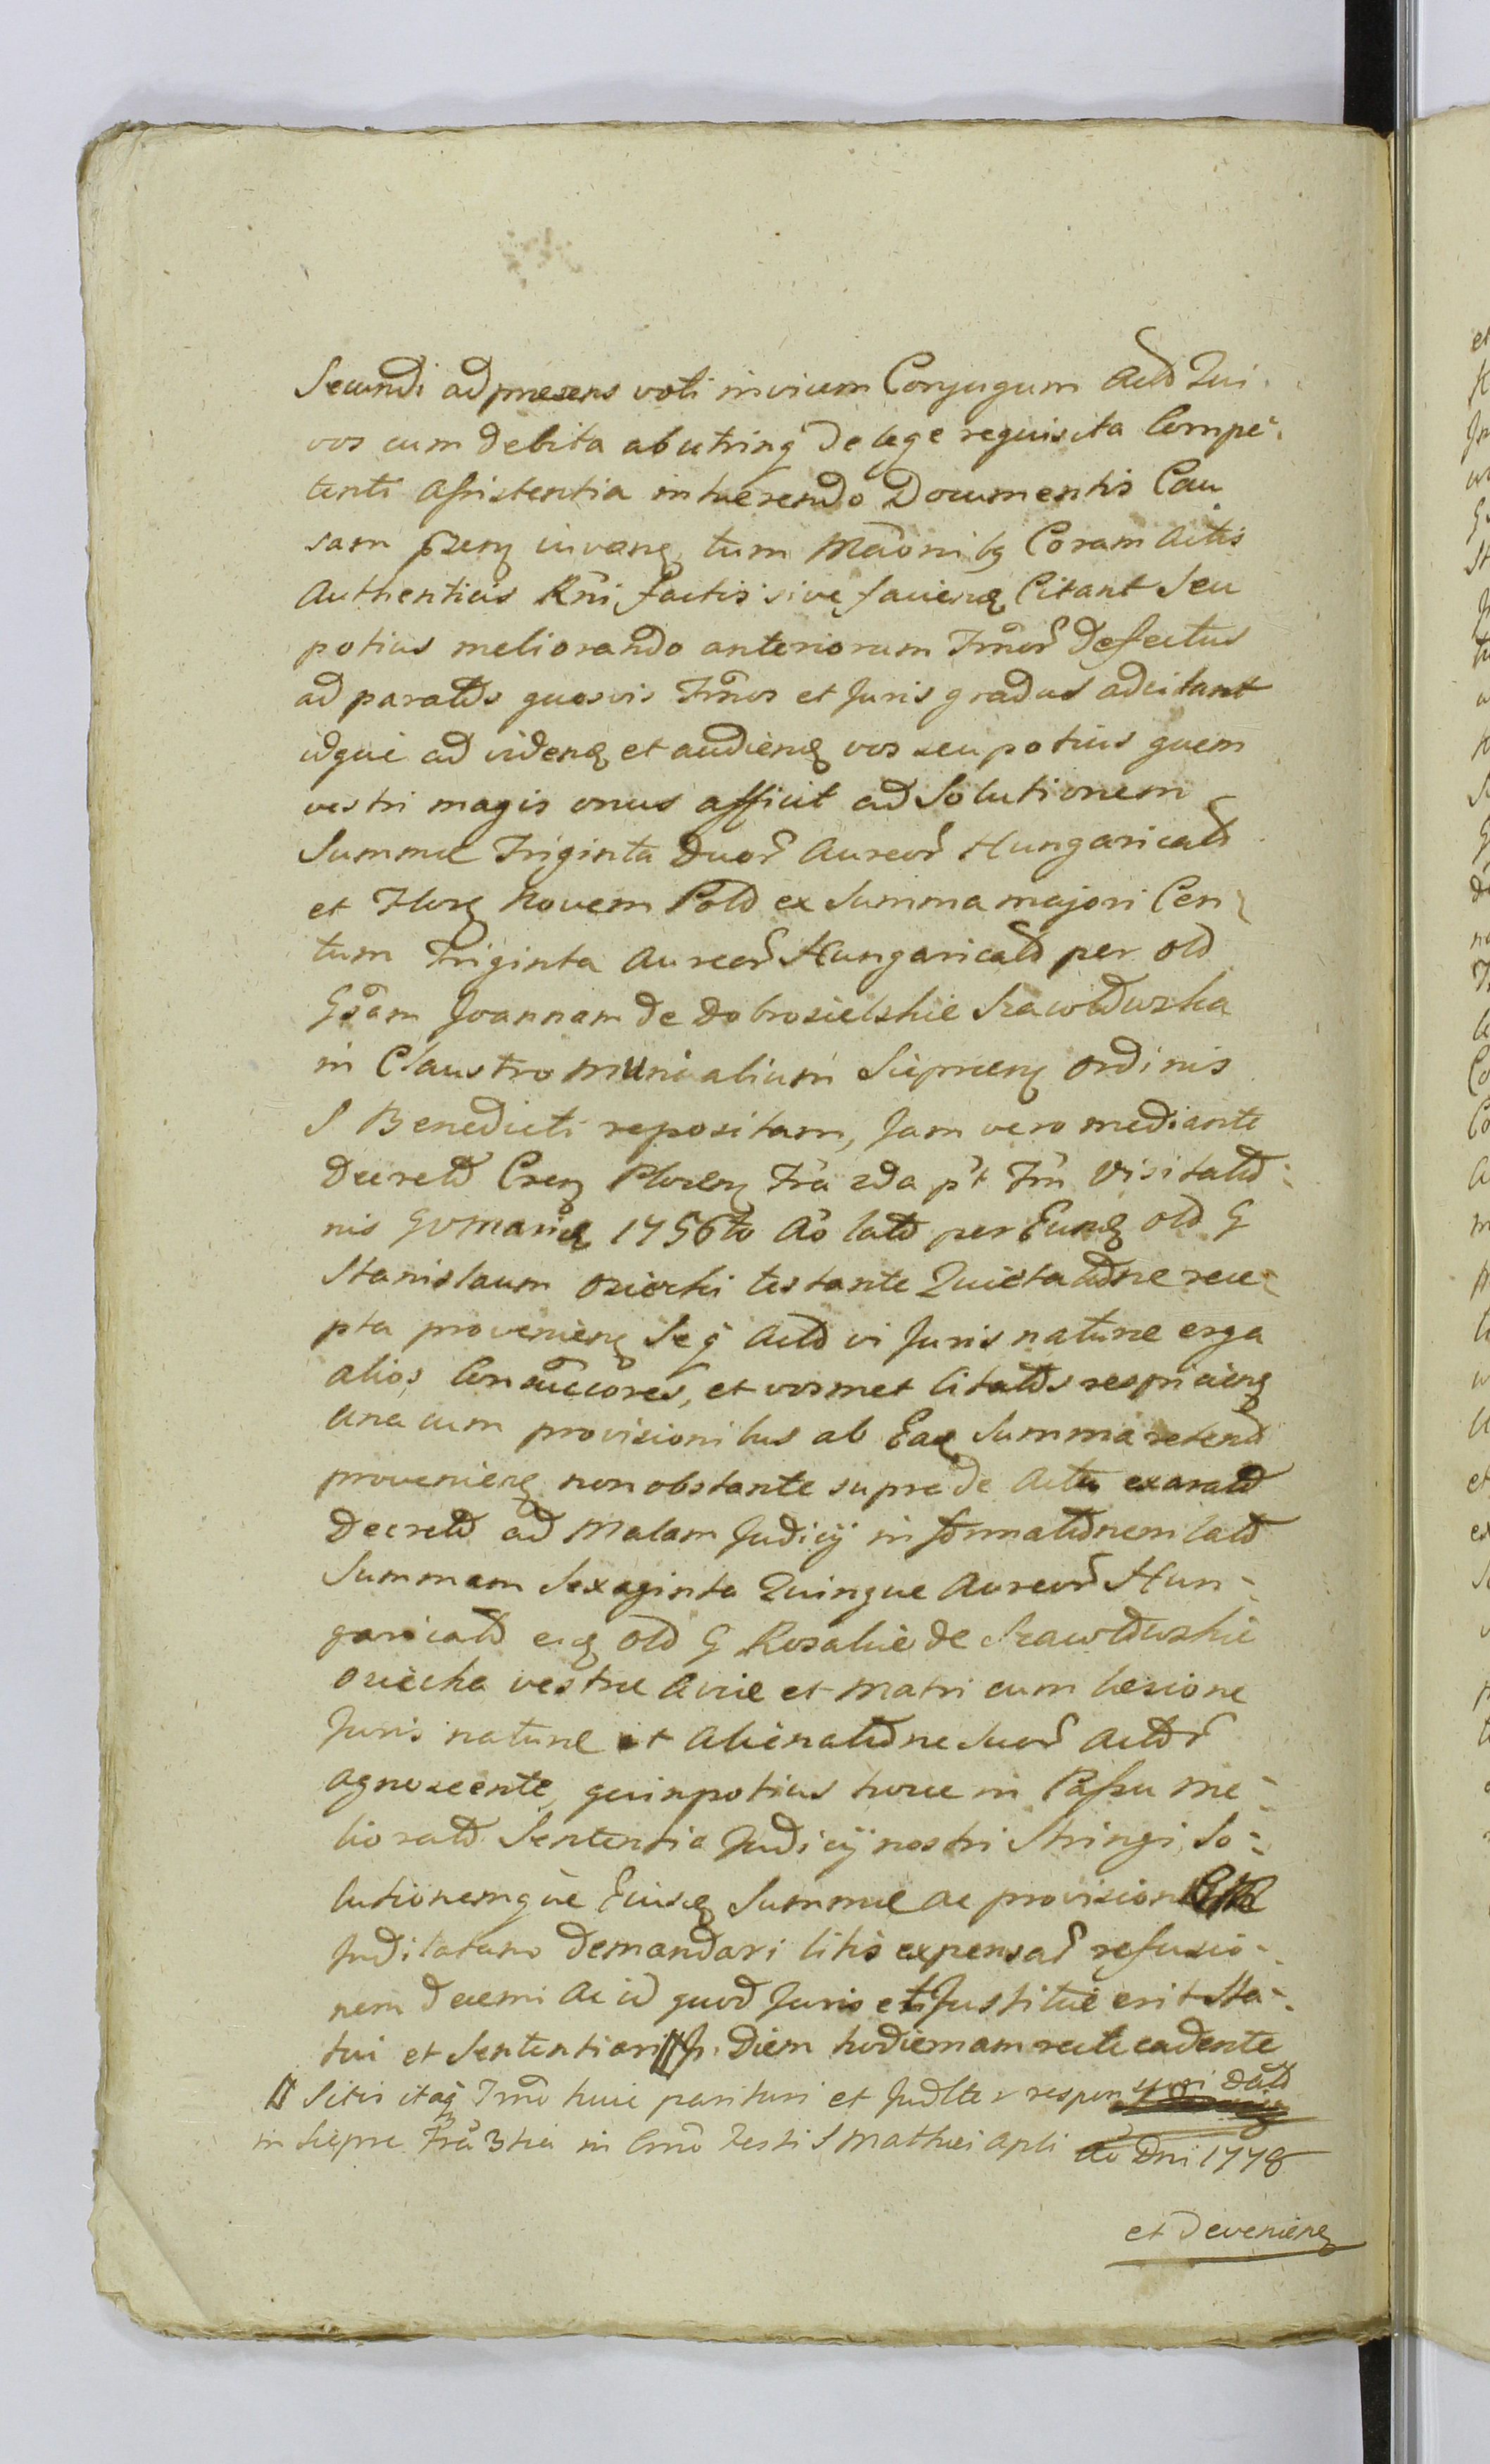 Secundi ad presens voti invicem Conjugum Actō Qui
vos cum debita ab utrinq̃ de lege requisita Compe-
tenti Assistentia inhærendo Documentis Cau
sam pñtem juvanẽ, tum Mãonibq Coram Actis
Authenticis Rñi factis sive faciend Citant Seu
potius meliorando anteriorum Trnoř defectus
ad paratōs quosvis Trnos et Juris gradus adcitant
idque ad videnđ et audienđ vos seu potius quem
vestri magis onus afficit ad Solutionem
Summæ Triginta Duoř Aureoř Hungaricalō
et Florẽ Novem Polō ex Summa majori Cen-
tum Triginta Aureoř Hungaricalō per olō
Gsam Joannam de Dobrosielskie Srawłowska
in Claustro Munialium Siepreñ Ordinis
S Benedicti repositam, Jam vero mediante
Decretō Creñ Ploceñ Fra 2da p̃t Frũ Visitatiō-
nis GVMariæ 1756to Ão latō per Eunđ olō G
Stanislaum Osiecki testante Quietatiōne rece-
pta provenienẽ Seq̃ Actō vi Juris naturæ erga
alios Consuccores, et vosmet Citatōs respicienẽ
una cum provisionibus ab Eađ Summa retentō
provenienẽ non obstante supra de Actu exaratō
Decretō ad Malam Judicij informatiōnem latō
Summam Sexaginta Quinque Aureoř Hun-
garicalō eiđ olō G Rosaliæ de Srawłowskie
Osiecka vestræ Aviæ et Matri cum læsione
Juris naturæ et Alienatiōne Suoř Actōř
agnoscente, quinpotius huic in Passu me-
lioratō Sententia Judicij nostri Stringi, So-
lutionemque Ejusđ Summæ ac provision
Juditatano demandari litis expensař refusio-
nem decerni ac id quod Juris et Justitiæ erit Sta-
tui et Sententiari // P. Diem hodiernam recte cadente
// Sitis itaq̃ Trno huic parituri et Judlter responsuri Datō
in Siepre Fra 3tia in Crno Festi S Mathæi Apli Ão Dni 1778
et devenienẽ